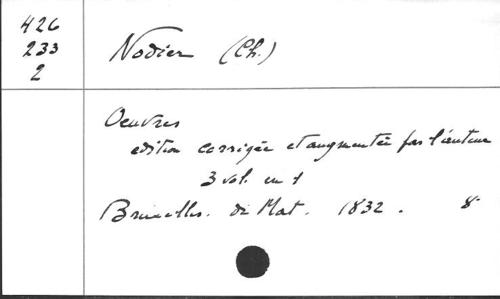 426
233
2
Nodier (Ch.)
Oeuvres
edition corrigée et augmentée par l'auteur
3 vol. en 1
Bruxelles. de Mat. 1832. 8°